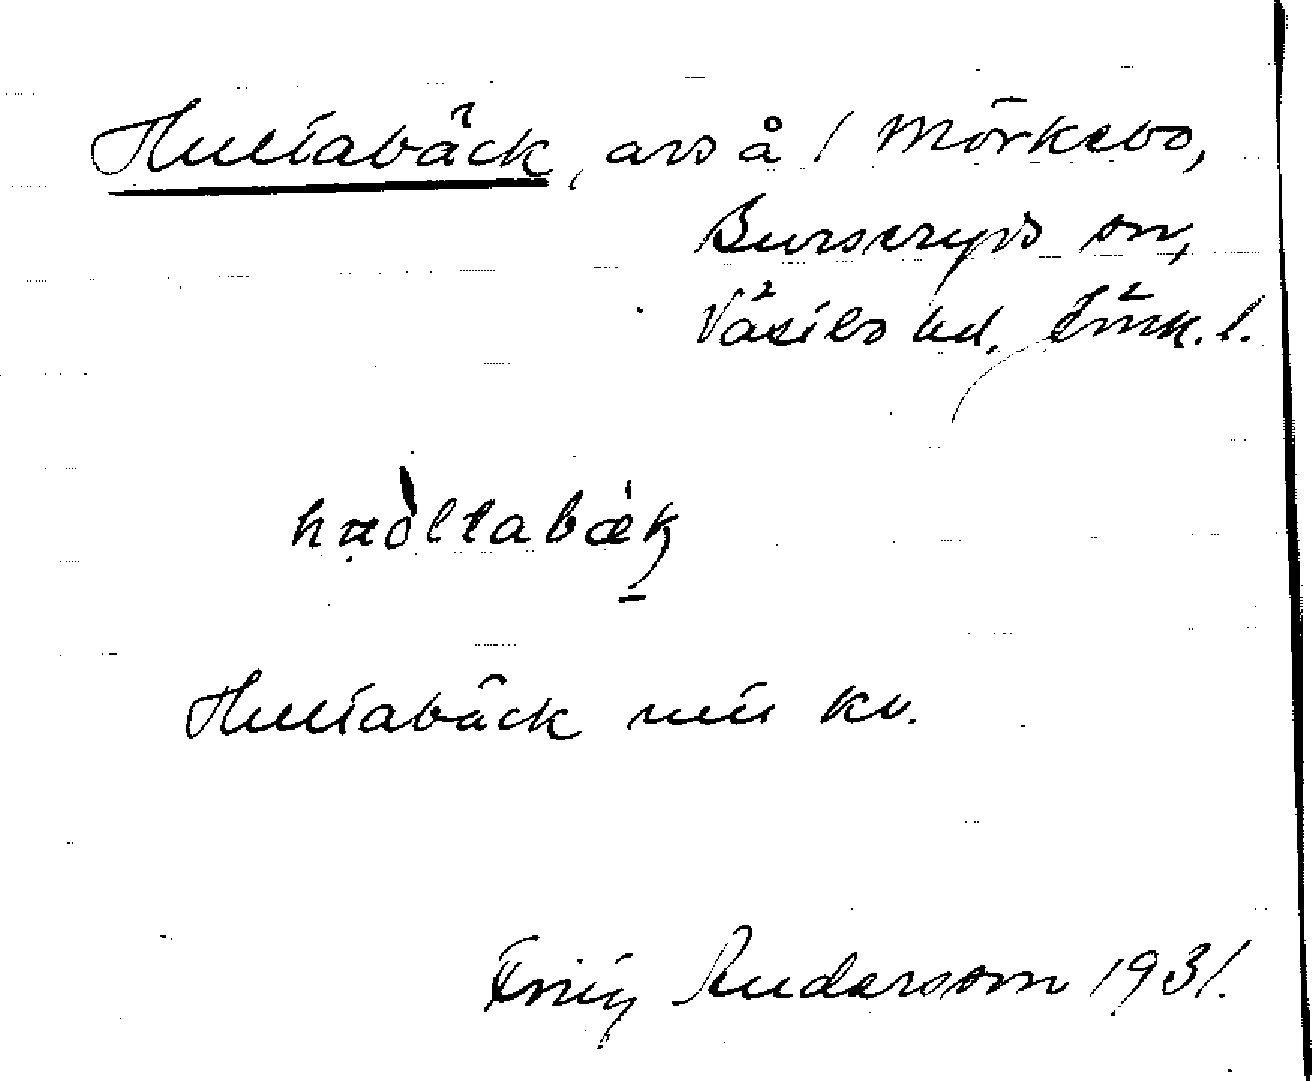 Hultabäck, avs å / Mörkebo,
Burseryds sn,
Västbo hd. Jönk. l.
hæòltabæk
Hultabäck kv.
Andersson 1931.